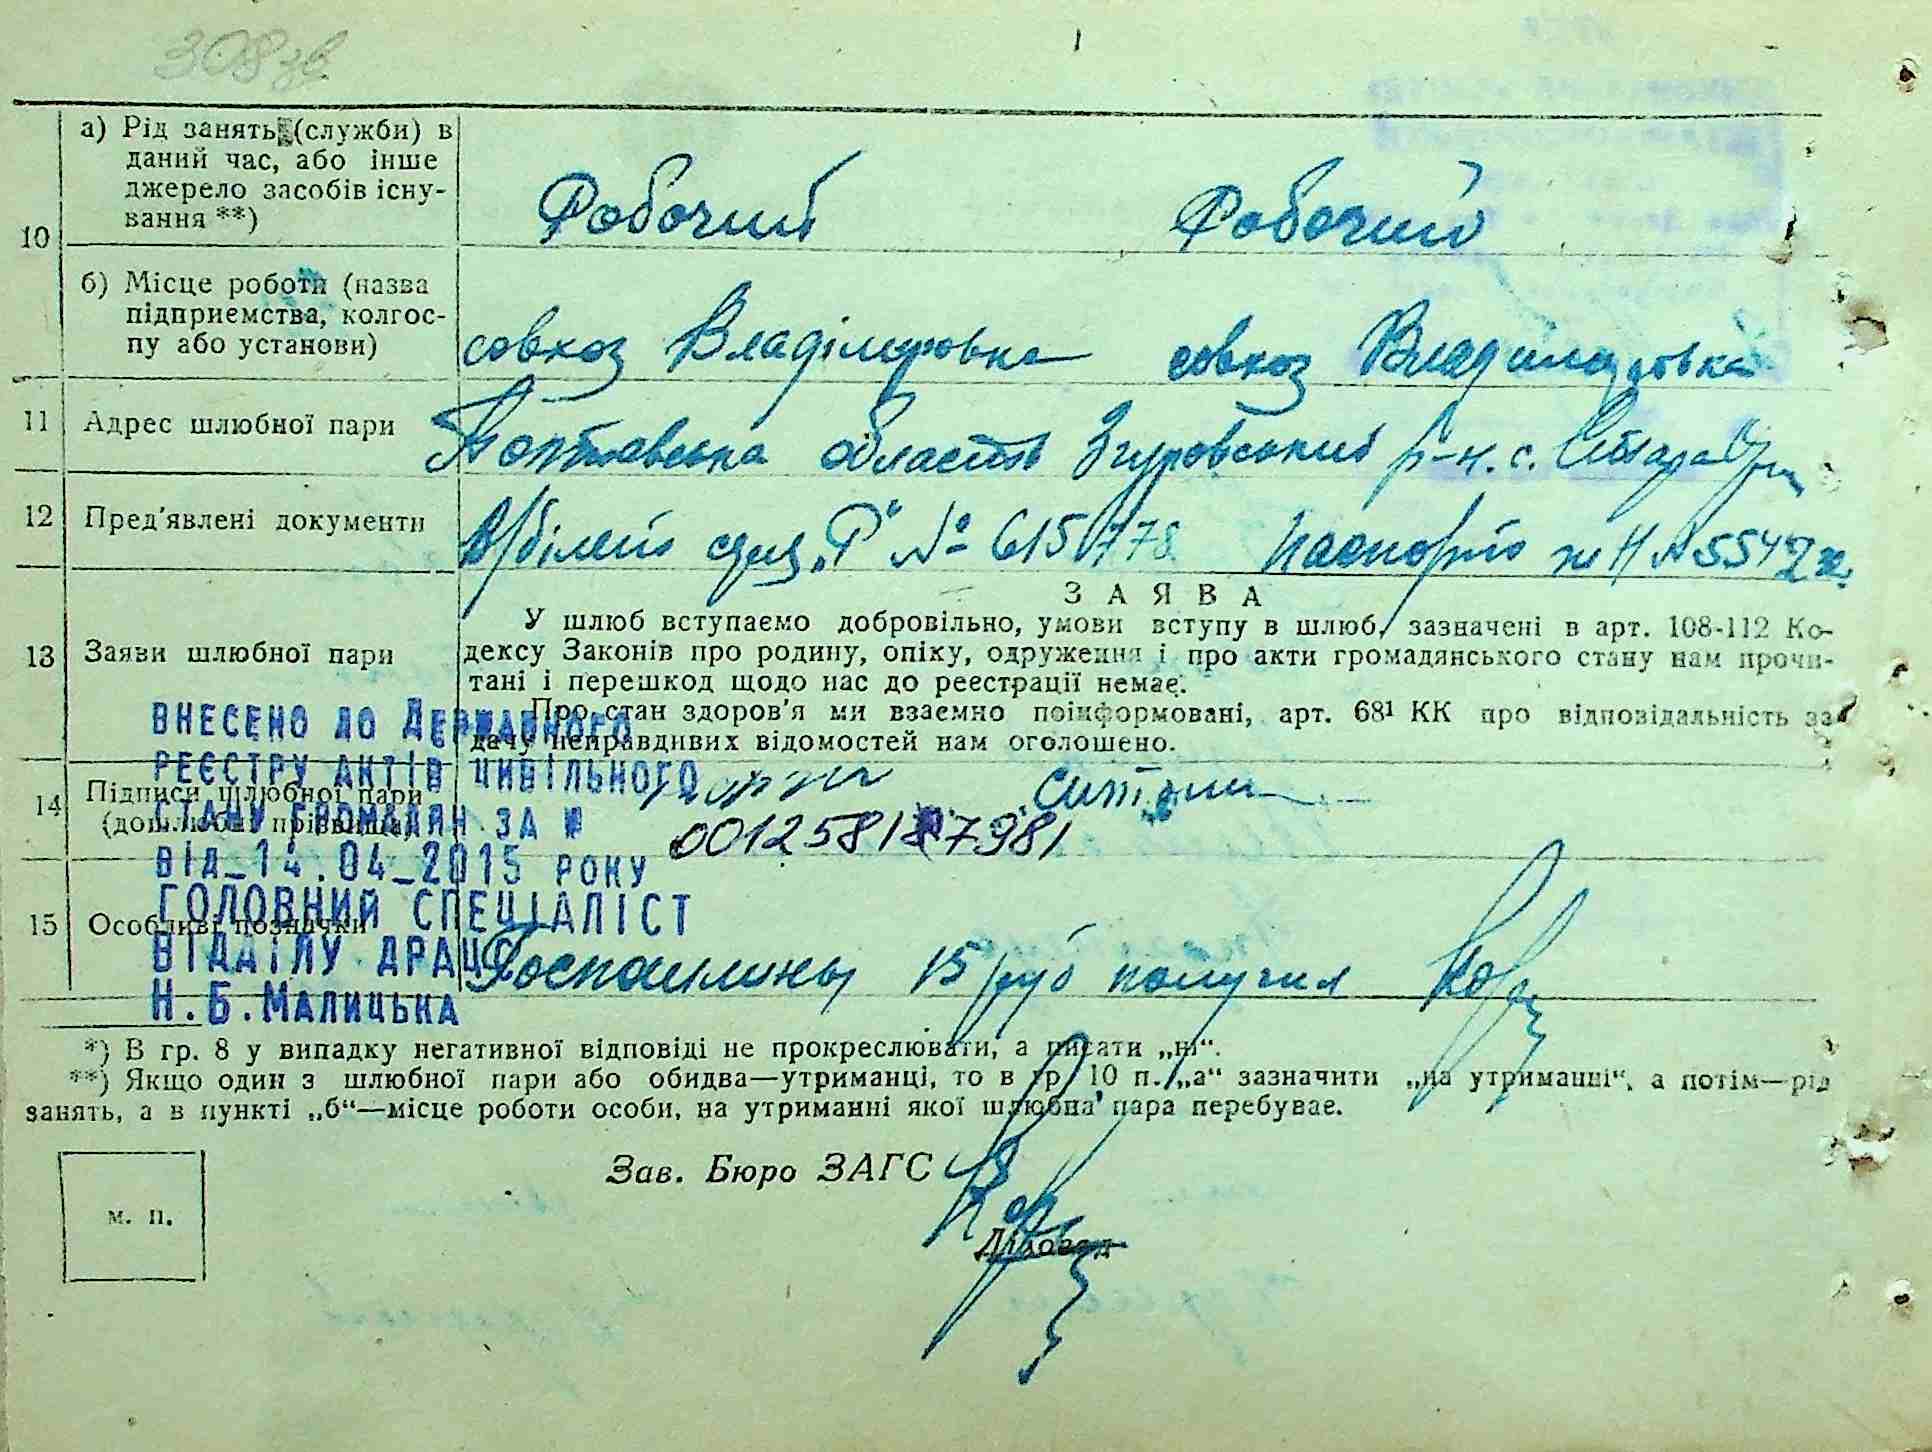 308 зв
10
а) Рід занять (служби) в
даний час, або інше
джерело засобів існу-
вання **)
Робочий Робочий
б) Місце роботи (назва
підприємства, колгос-
пу або установи)
совхоз Владіміровка совхоз Владиміровка
11 Адрес шлюбної пари
Полтавська область Згуровський р-н. с. Стара
12 Пред'явлені документи
В/білет сер. „Р" № 615778 паспорт
13 Заяви шлюбної пари
ЗАЯВА
У шлюб вступаємо добровільно, умови вступу в шлюб, зазначені в арт. 108-112 Ко-
дексу Законів про родину, опіку, одруження і про акти громадянського стану нам прочи-
тані і перешкод щодо нас до реєстрації немає.
Про стан здоров'я ми взаємно поінформовані, арт. 68¹ КК про відповідальність за
дачу неправдивих відомостей нам оголошено.
14 Підписи шлюбної пари
(дошлюбні прізвища)
15 Особливі позначки
Госпошлину 15 руб получил
ВНЕСЕНО ДО ДЕРЖАВНОГО
РЕЄСТРУ АКТІВ ЦИВІЛЬНОГО
СТАНУ ГРОМАДЯН ЗА №
00125817981
ВІД_14.04_2015 РОКУ
ГОЛОВНИЙ СПЕЦІАЛІСТ
ВІДДІЛУ ДРАЦС
Н.Б.МАЛИЦЬКА
*) В гр. 8 у випадку негативної відповіді не прокреслювати, а писати „ні".
**) Якщо один з шлюбної пари або обидва—утриманці, то в гр. 10 п. „а" зазначити „на утриманні", а потім—рід
занять, а в пункті „б"—місце роботи особи, на утриманні якої шлюбна пара перебуває.
Зав. Бюро ЗАГС
Діловод
м. п.